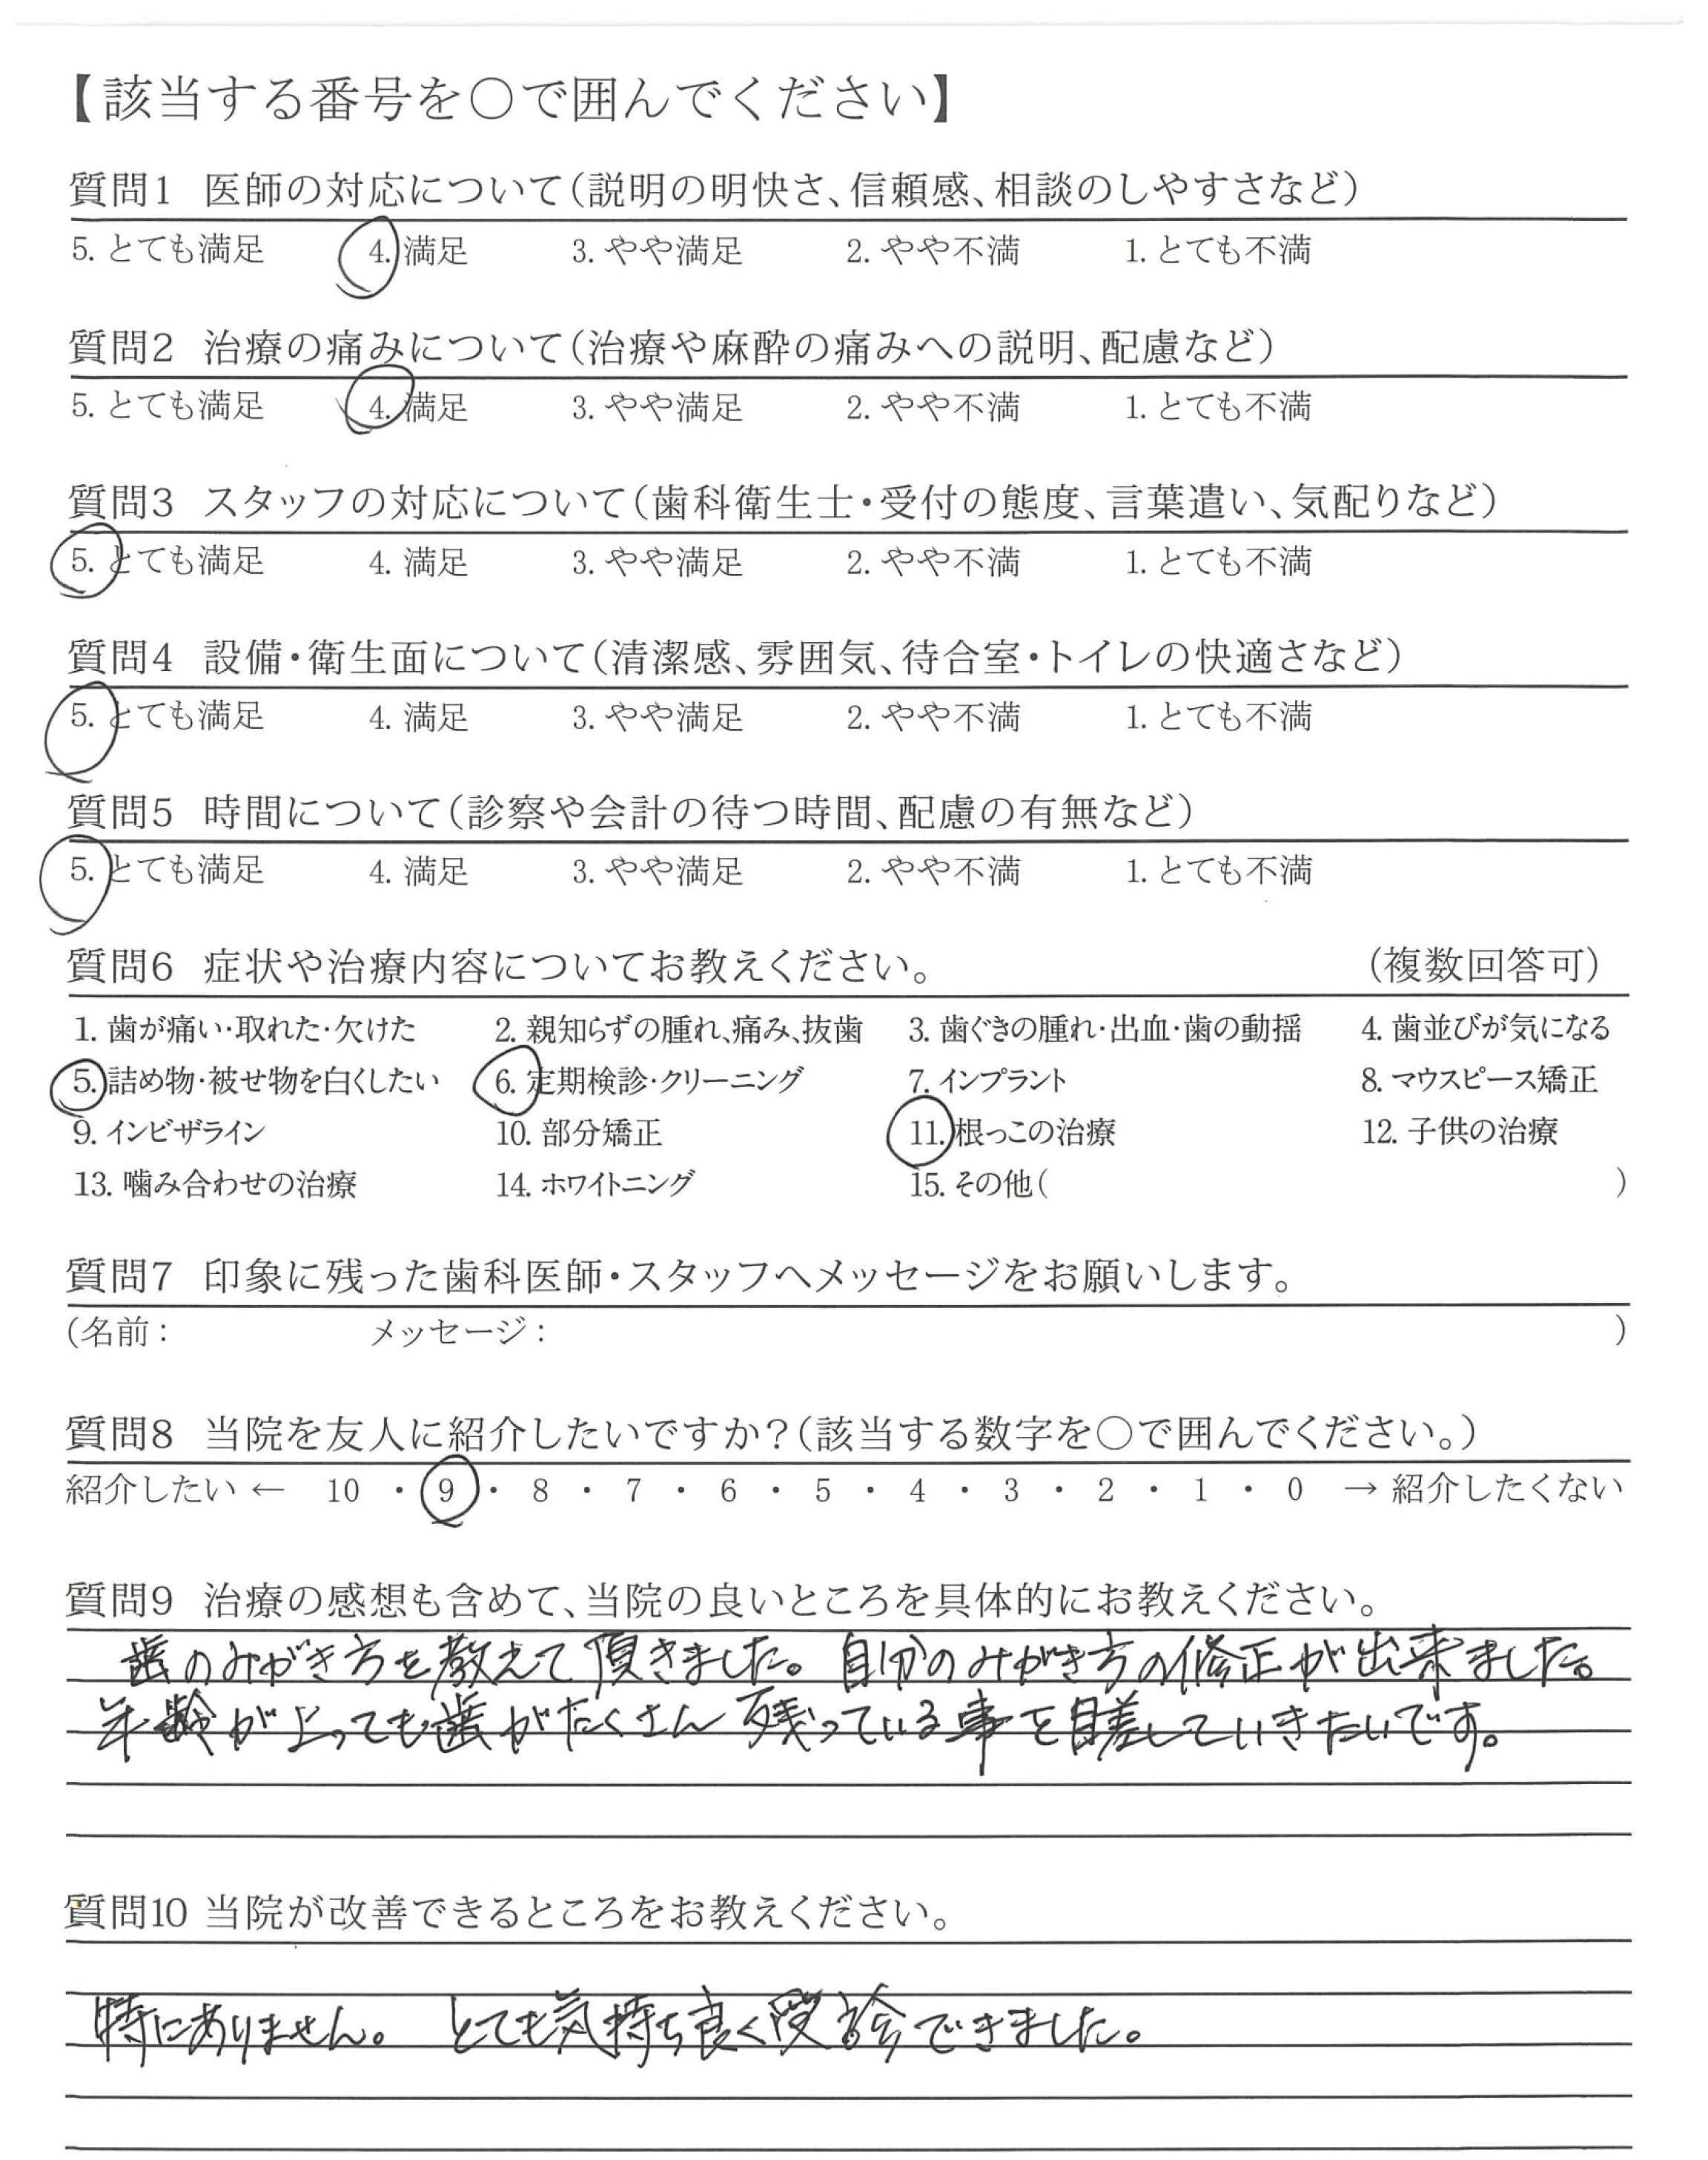 【該当する番号を○で囲んでください】
質問1 医師の対応について(説明の明快さ、信頼感、相談のしやすさなど)
5. とても満足 4. 満足 3. やや満足 2. やや不満 1. とても不満
質問2 治療の痛みについて(治療や麻酔の痛みへの説明、配慮など)
5. とても満足 4. 満足 3. やや満足 2. やや不満 1. とても不満
質問3 スタッフの対応について(歯科衛生士・受付の態度、言葉遣い、気配りなど)
5. とても満足 4. 満足 3. やや満足 2. やや不満 1. とても不満
質問4 設備・衛生面について(清潔感、雰囲気、待合室・トイレの快適さなど)
5. とても満足 4. 満足 3. やや満足 2. やや不満 1. とても不満
質問5 時間について(診察や会計の待つ時間、配慮の有無など)
5. とても満足 4. 満足 3. やや満足 2. やや不満 1. とても不満
質問6 症状や治療内容についてお教えください。 (複数回答可)
1. 歯が痛い・取れた・欠けた 2. 親知らずの腫れ、痛み、抜歯 3. 歯ぐきの腫れ・出血・歯の動揺 4. 歯並びが気になる
5. 詰め物・被せ物を白くしたい 6. 定期検診・クリーニング 7. インプラント 8. マウスピース矯正
9. インビザライン 10. 部分矯正 11. 根っこの治療 12. 子供の治療
13. 噛み合わせの治療 14. ホワイトニング 15. その他( )
質問7 印象に残った歯科医師・スタッフへメッセージをお願いします。
(名前: メッセージ: )
質問8 当院を友人に紹介したいですか?(該当する数字を○で囲んでください。)
紹介したい ← 10 ・ 9 ・ 8 ・ 7 ・ 6 ・ 5 ・ 4 ・ 3 ・ 2 ・ 1 ・ 0 → 紹介したくない
質問9 治療の感想も含めて、当院の良いところを具体的にお教えください。
歯のみがき方を教えて頂きました。自分のみがき方の修正が出来ました。
年齢が上っても歯がたくさん残っている事を目差していきたいです。
質問10 当院が改善できるところをお教えください。
特にありません。 とても気持ち良く受診できました。